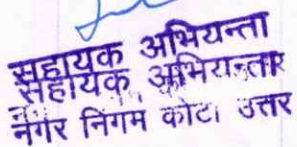 सहायक अभियन्ता
सहायक अभियन्ता
नगर निगम कोटा उत्तर